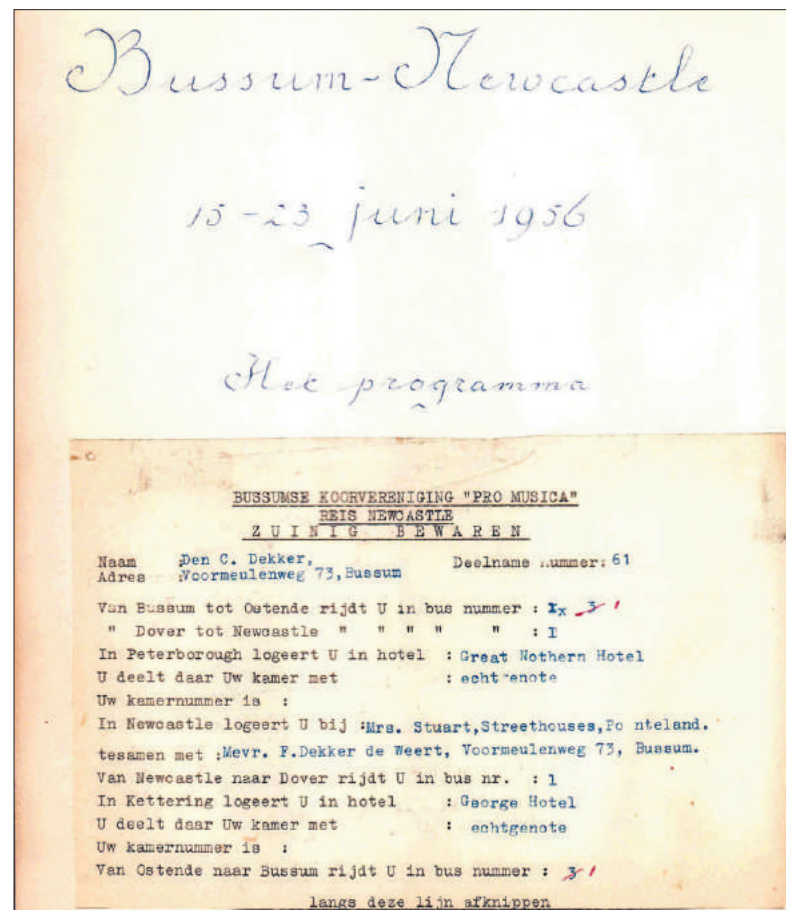 Bussum-Newcastle
15-23 juni 1956
Het programma
BUSSUMSE KOORVERENIGING "PRO MUSICA"
REIS NEWCASTLE
ZUINIG BEWAREN
Naam :Den C. Dekker, Deelname nummer: 61
Adres :Voormeulenweg 73, Bussum
Van Bussum tot Ostende rijdt U in bus nummer : Ix 3 1
" Dover tot Newcastle " " " " " : I
In Peterborough logeert U in hotel : Great Nothern Hotel
U deelt daar Uw kamer met : echtgenote
Uw kamernummer is :
In Newcastle logeert U bij :Mrs. Stuart,Streethouses,Po nteland.
tesamen met :Mevr. F.Dekker de Weert, Voormeulenweg 73, Bussum.
Van Newcastle naar Dover rijdt U in bus nr. : 1
In Kettering logeert U in hotel : George Hotel
U deelt daar Uw kamer met : echtgenote
Uw kamernummer is :
Van Ostende naar Bussum rijdt U in bus nummer : 3 1
langs deze lijn afknippen